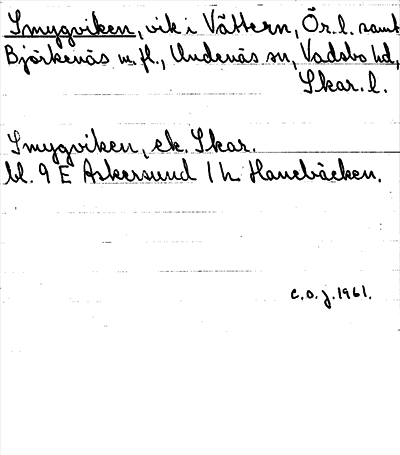 Smygviken, vik i Vättern, Ör. l. samt
Björkenäs m. fl., Undenäs sn, Vadsbo hd,
Skar. l.
Smygviken, ek. Skar.
bl. 9 E Askersund 1 h Hanebäcken.
c. o. j. 1961.